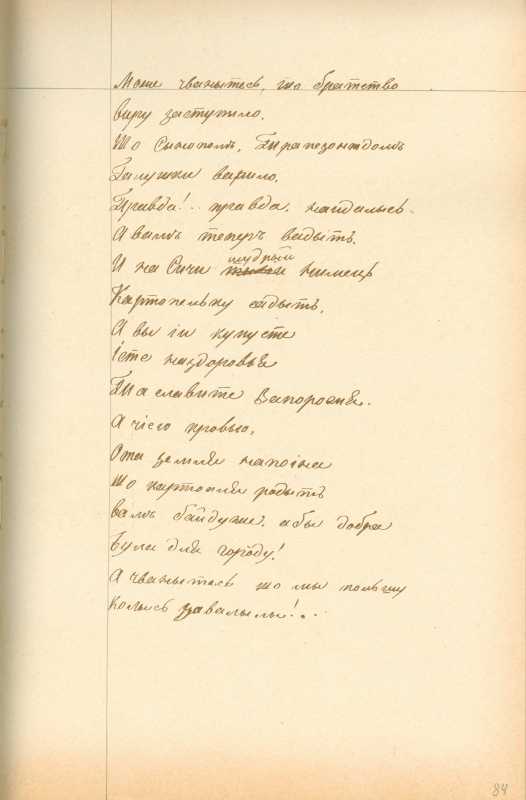 Може чванытесь, що братство
виру заступило.
Що Синопомъ, Трапезонтдомъ
Галушки варило.
Правда!.. правда, наидались.
А вамъ теперъ вадыть.
И на Сичи мудрый нимець
Картопельку садыть,
А вы іи купуете
Їсте на здоровья
Та славите Запорожья.
А чіею кровью,
Ота земля напоіна
Що картопля родыть
вамъ байдуже, абы добра
Була для городу!
А чванытесь що мы польщу
Колысь завалылы!..
84